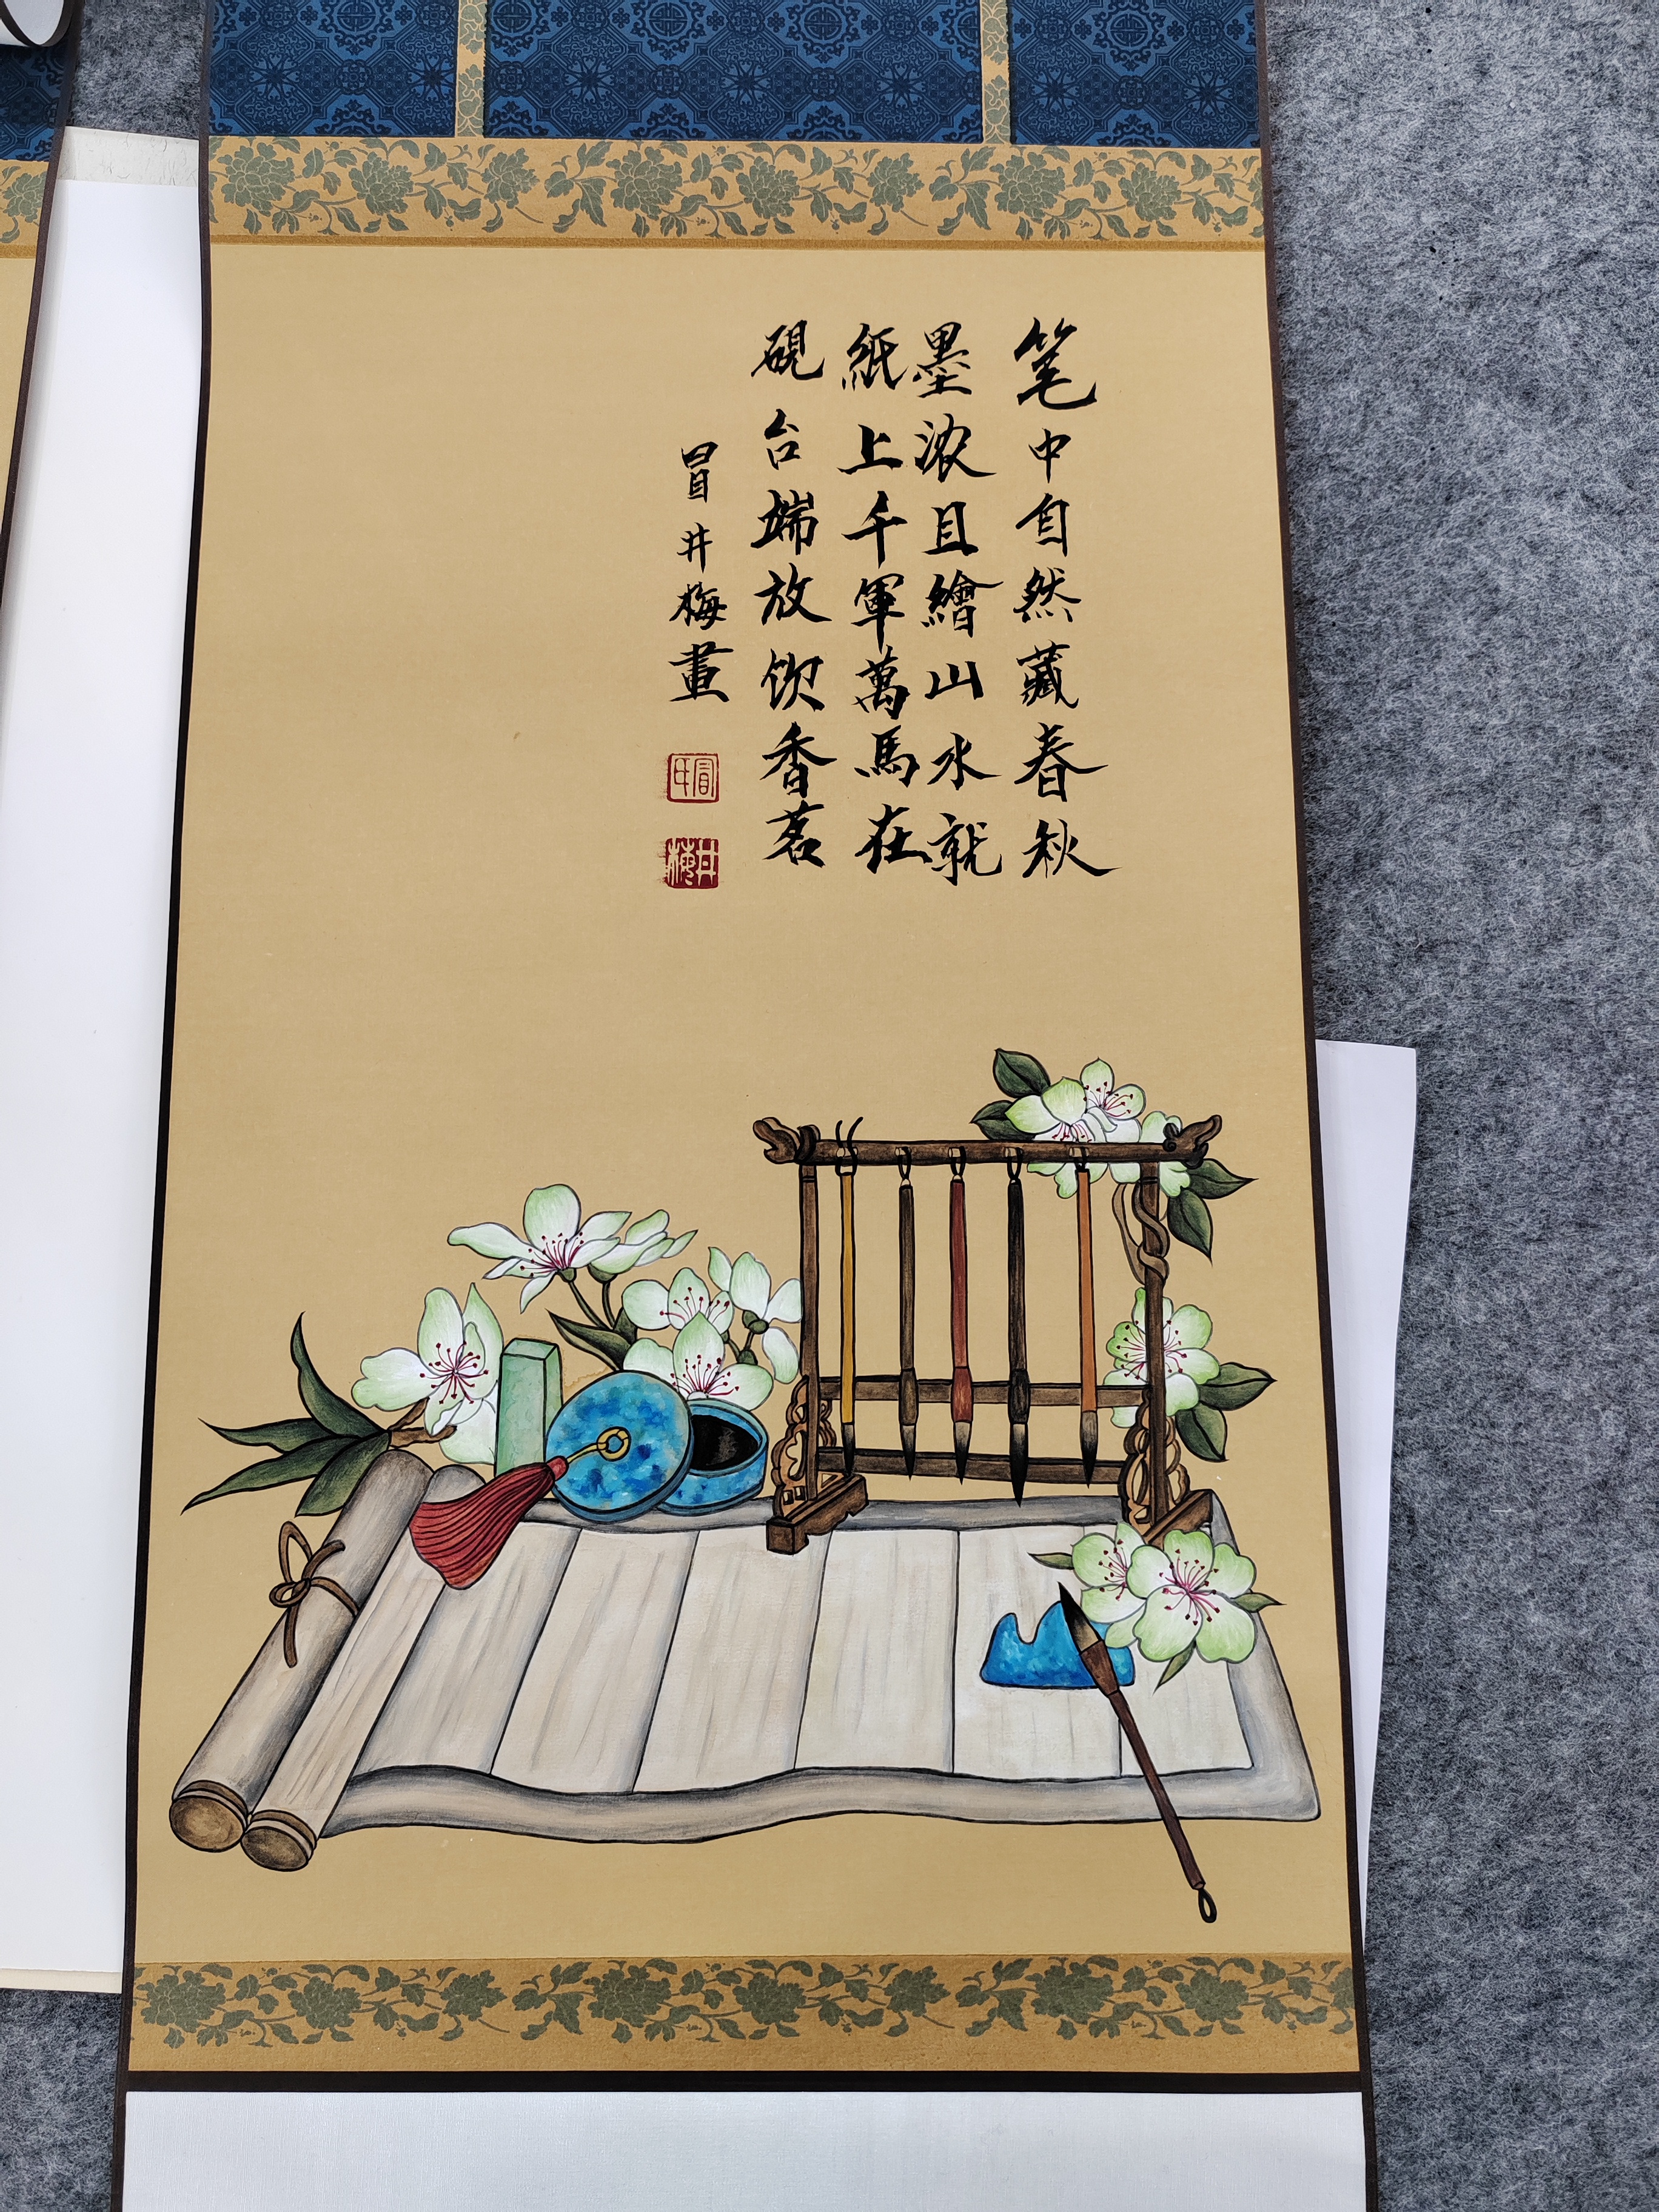 笔中自然藏春秋
墨浓且繪山水就
紙上千軍萬馬在
硯台端放饮香茗
冒井梅畫
冒氏
井梅